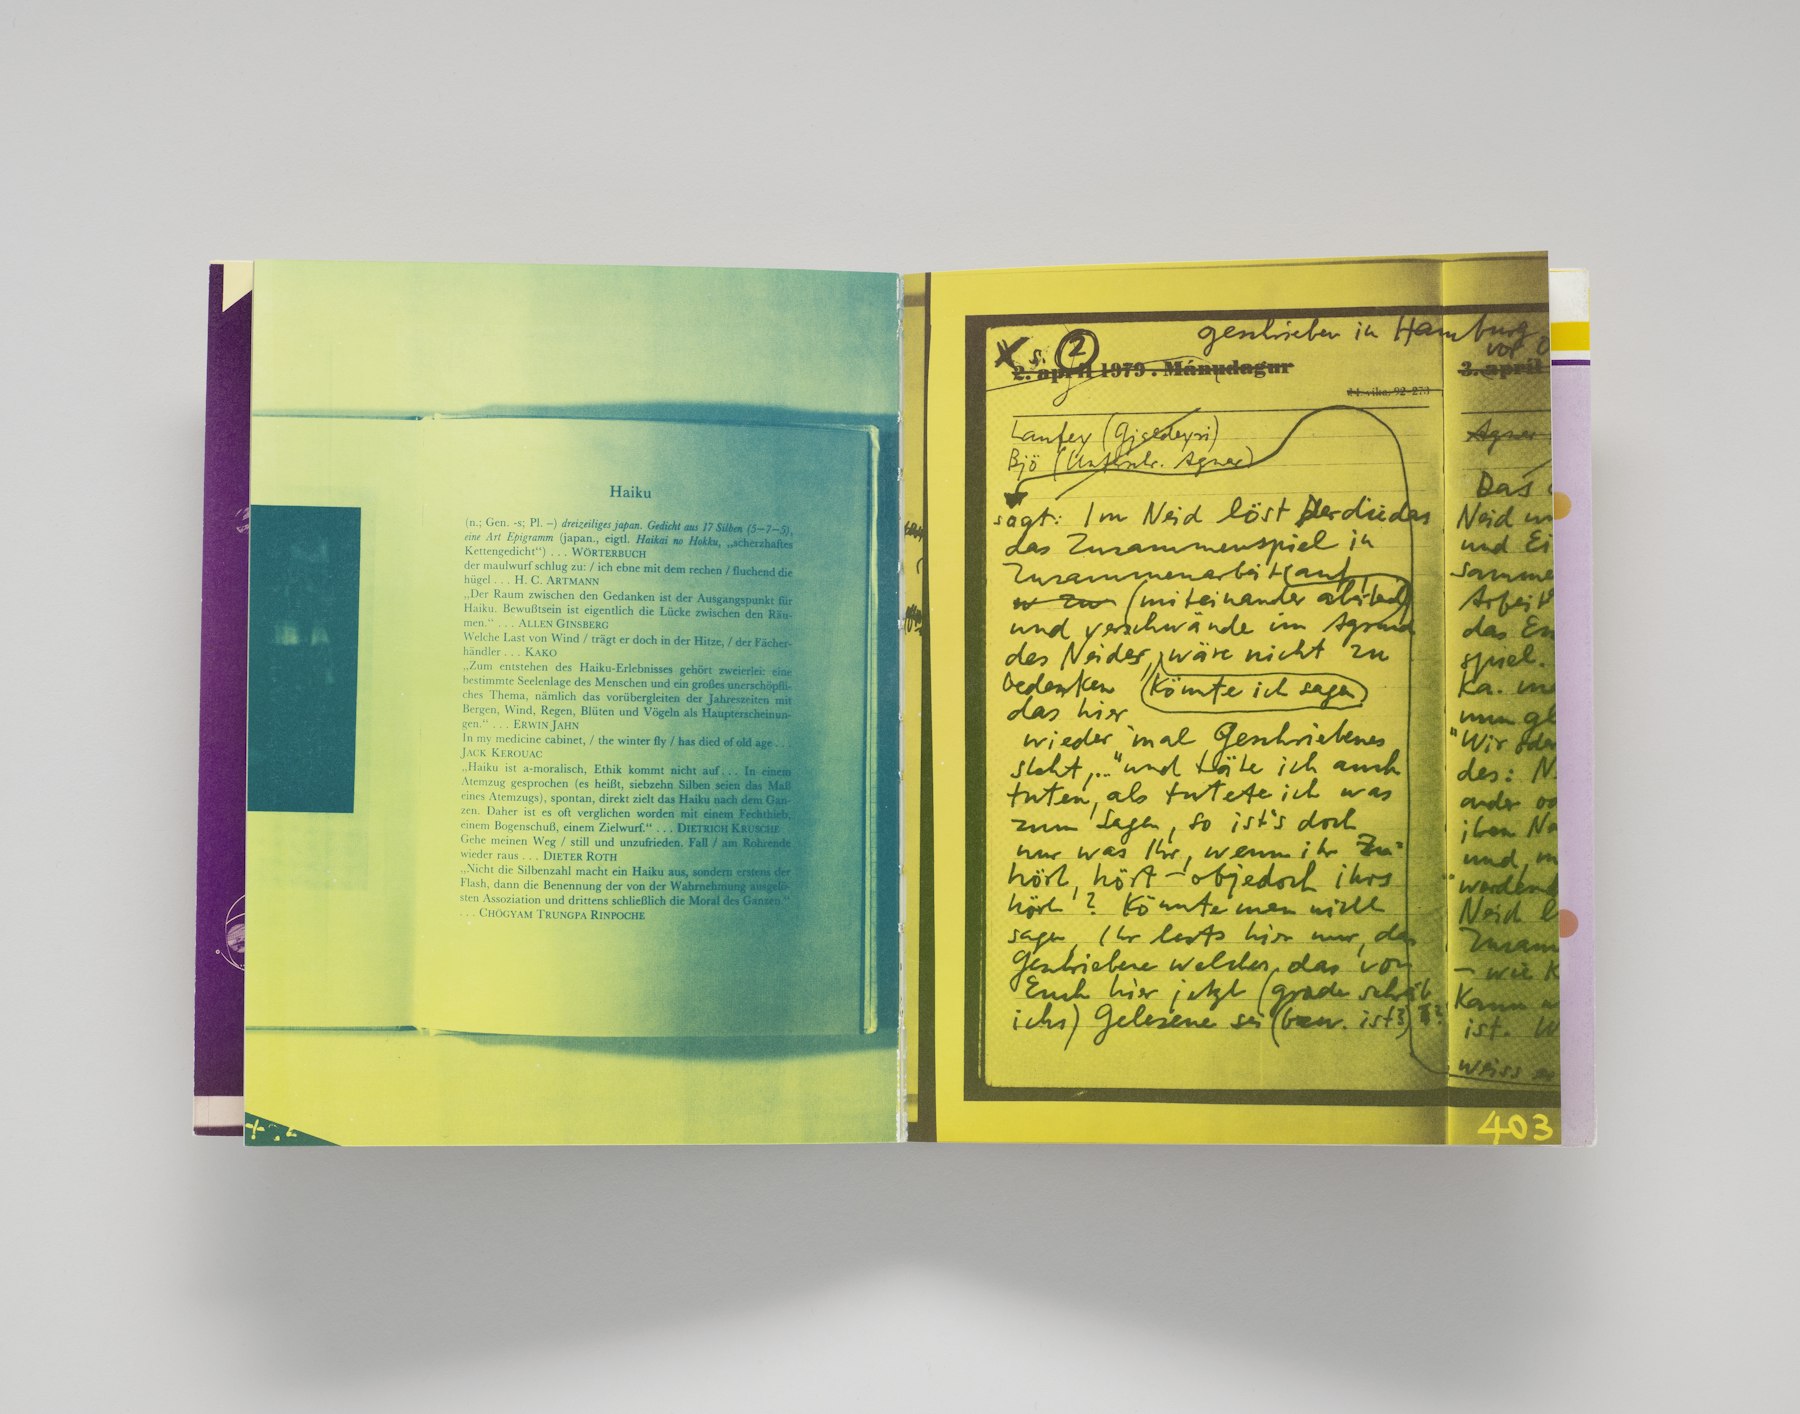 Haiku
(n.; Gen. -s; Pl. –) dreizeiliges japan. Gedicht aus 17 Silben (5—7—5),
eine Art Epigramm (japan., eigtl. Haikai no Hokku, „scherzhaftes
Kettengedicht“) . . . WÖRTERBUCH
der maulwurf schlug zu: / ich ebne mit dem rechen / fluchend die
hügel . . . H. C. ARTMANN
„Der Raum zwischen den Gedanken ist der Ausgangspunkt für
Haiku. Bewußtsein ist eigentlich die Lücke zwischen den Räu-
men.“ . . . ALLEN GINSBERG
Welche Last von Wind / trägt er doch in der Hitze, / der Fächer-
händler . . . KAKO
„Zum entstehen des Haiku-Erlebnisses gehört zweierlei: eine
bestimmte Seelenlage des Menschen und ein großes unerschöpfli-
ches Thema, nämlich das vorübergleiten der Jahreszeiten mit
Bergen, Wind, Regen, Blüten und Vögeln als Haupterscheinun-
gen.“ . . . ERWIN JAHN
In my medicine cabinet, / the winter fly / has died of old age . . .
JACK KEROUAC
„Haiku ist a-moralisch, Ethik kommt nicht auf . . . In einem
Atemzug gesprochen (es heißt, siebzehn Silben seien das Maß
eines Atemzugs), spontan, direkt zielt das Haiku nach dem Gan-
zen. Daher ist es oft verglichen worden mit einem Fechthieb,
einem Bogenschuß, einem Zielwurf.“ . . . DIETRICH KRUSCHE
Gehe meinen Weg / still und unzufrieden. Fall / am Rohrende
wieder raus . . . DIETER ROTH
„Nicht die Silbenzahl macht ein Haiku aus, sondern erstens der
Flash, dann die Benennung der von der Wahrnehmung ausgelö-
sten Assoziation und drittens schließlich die Moral des Ganzen.“
. . . CHÖGYAM TRUNGPA RINPOCHE
geschrieben in Hamburg
vor
X s. 2
2. apríl 1979 . Mánudagur
14. vika, 92-273
Laufey
Bjö
sagt: Im Neid löst Derdiedas
das Zusammenspiel in
Zusammenarbeit (auf
(miteinander
und verschwände im
des Neides, wäre nicht zu
bedenken (könnte ich sagen)
das hier
wieder 'mal Geschriebenes
steht,..." und täte ich auch
tuten, als tutete ich was
zum sagen, so ist's doch
nur was Ihr, wenn ihr Zu-
hört, hört – objedoch ihrs
hört? Könnte man nicht
sagen, Ihr lests hier nur, das
Geschriebene welches, das von
Euch hier jetzt (grade schreib
ichs) Gelesene sei (bzw. ist?)
3. apríl
Agnar
Das
Neid
und Ei
Arbeit
das
spiel.
Ka.
"Wir oder
des: N
ander
und,
"werdend
Neid
Zusam
– wie K
Kann
ist. W
weiss
403